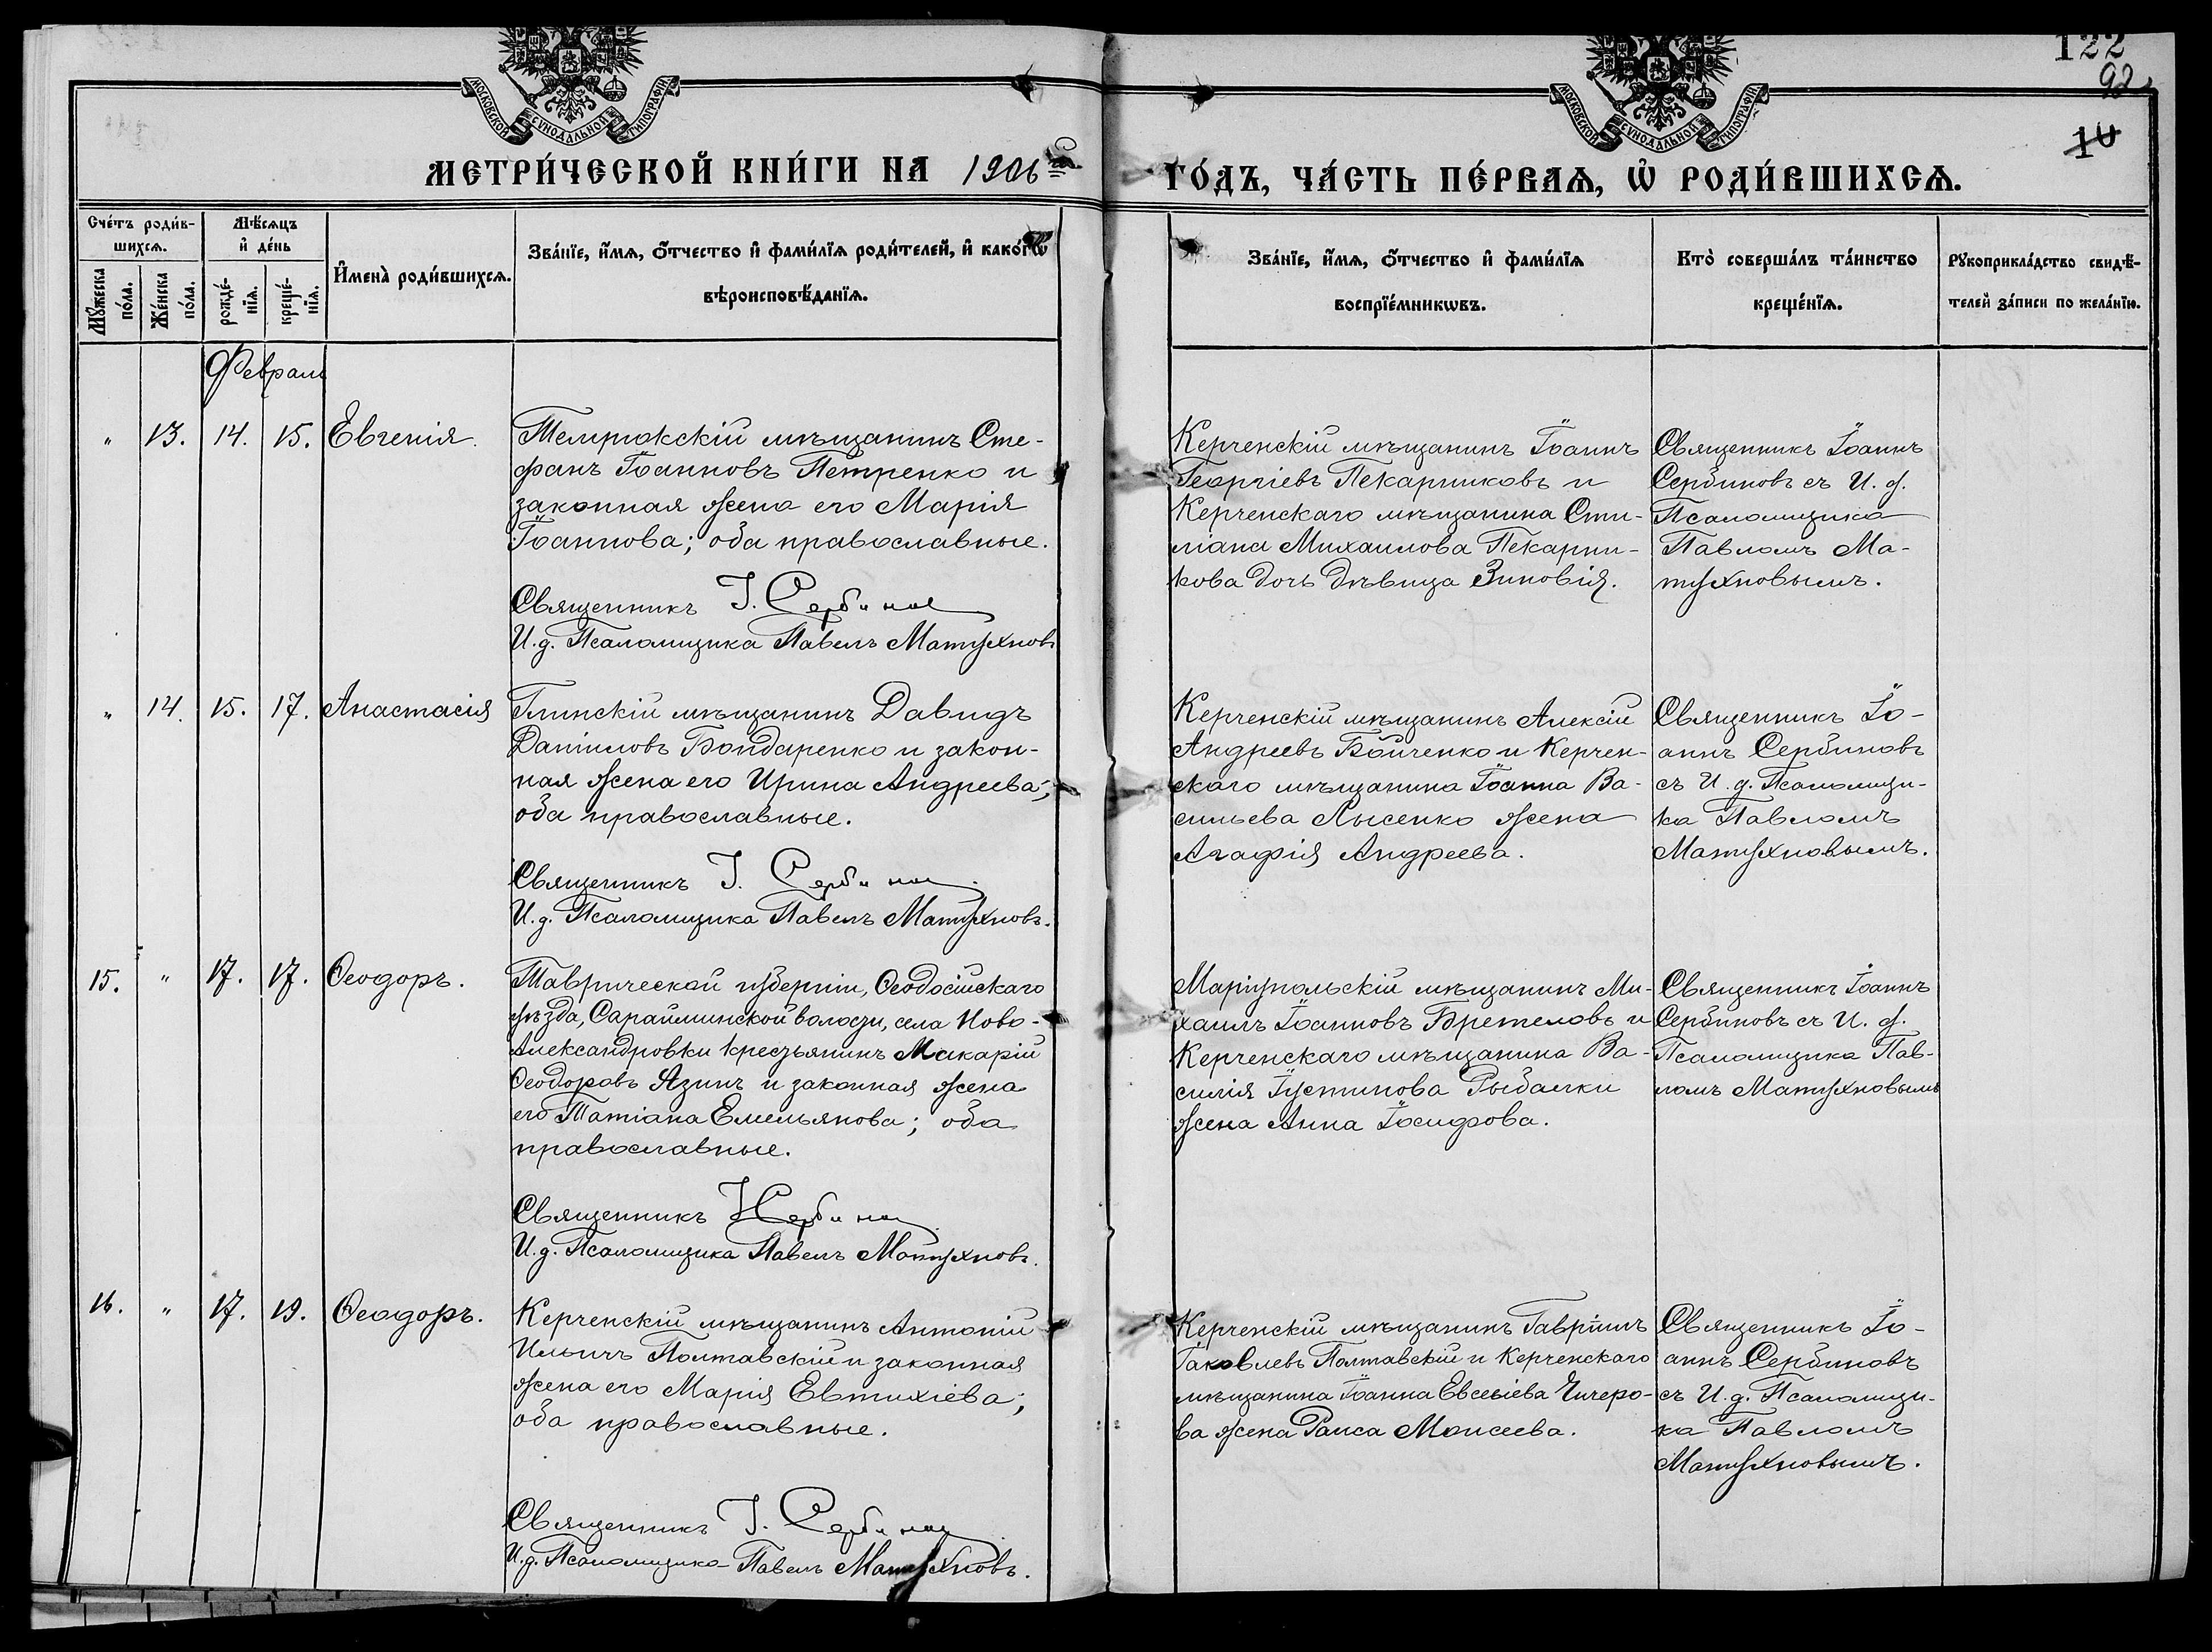 122
92
10
МОСКОВСКОЙ СѴНОДАЛЬНОЙ ТИПОГРАФІИ
МОСКОВСКОЙ СѴНОДАЛЬНОЙ ТИПОГРАФІИ
МЕТРИ́ЧЕСКОЙ КНИ́ГИ НА 1906
ГО́ДЪ, ЧА́СТЬ ПЕ́РВАЯ, Ѡ҆ РОДИ́ВШИХСЯ.
Сче́тъ роди́в-
шихся.
Мꙋ́жеска по́ла.
Же́нска по́ла.
Мѣ́сяцъ
и҆ де́нь
рожде́-
нїя.
креще́-
нїя.
И҆мена̀ роди́вшихся.
Зва́нїе, и҆́мя, ѻ҆́тчество и҆ фами́лїя роди́телей, и҆ како́гѡ
вѣроисповѣ́данїя.
Зва́нїе, и҆́мя, ѻ҆́тчество и҆ фами́лїя
воспрїе́мникѡвъ.
Кто̀ соверша́лъ та́инство
креще́нїя.
Рꙋкоприкла́дство свидѣ́-
телей за́писи по жела́нїю.
Февраль
" 13. 14. 15. Евгенія.
Темрюкскій мѣщанинъ Сте-
фанъ Іоанновъ Петренко и
законная жена его Марія
Іоаннова; оба православные.
Священникъ І. Сербинов
И. д. Псаломщика Павелъ Матухновъ
Керченскій мѣщанинъ Іоаннъ
Георгіевъ Пекарниковъ и
Керченскаго мѣщанина Сти-
ліана Михаилова Пекарни-
кова дочь дѣвица Зиновія.
Священникъ Іоаннъ
Сербиновъ съ И. д.
Псаломщика
Павломъ Ма-
тухновымъ.
" 14. 15. 17. Анастасія
Глинскій мѣщанинъ Давидъ
Даніиловъ Бондаренко и закон-
ная жена его Ирина Андреева;
оба православные.
Священникъ І. Сербинов
И. д. Псаломщика Павелъ Матухновъ.
Керченскій мѣщанинъ Алексій
Андреевъ Бойченко и Керчен-
скаго мѣщанина Іоанна Ва-
сильева Лысенко жена
Агафія Андреева.
Священникъ Іо-
аннъ Сербиновъ
съ И. д. Псаломщи-
ка Павломъ
Матухновымъ.
15. " 17. 17. Ѳеодоръ.
Таврической губерніи, Ѳеодосійскаго
уѣзда, Сарайминской волости, села Ново-
Александровки крестьянинъ Макарій
Ѳеодоровъ Язинъ и законная жена
его Татіана Емельянова; оба
православные.
Священникъ І Сербинов
И. д. Псаломщика Павелъ Матухновъ.
Маріупольскій мѣщанинъ Ми-
хаилъ Іоанновъ Бретеловъ и
Керченскаго мѣщанина Ва-
силія Іустинова Рыбалки
жена Анна Іосифова.
Священникъ Іоаннъ
Сербиновъ съ И. д.
Псаломщика Пав-
ломъ Матухновымъ
16. " 17. 19. Ѳеодоръ.
Керченскій мѣщанинъ Антоній
Ильичъ Полтавскій и законная
жена его Марія Евтихіева;
оба православные.
Священникъ І. Сербинов
И. д. Псаломщика Павелъ Матухновъ.
Керченскій мѣщанинъ Гавріилъ
Іаковлевъ Полтавскій и Керченскаго
мѣщанина Іоанна Евсевіева Чичеро-
ва жена Раиса Моисеева.
Священникъ Іо-
аннъ Сербиновъ
съ И. д. Псаломщи-
ка Павломъ
Матухновымъ.